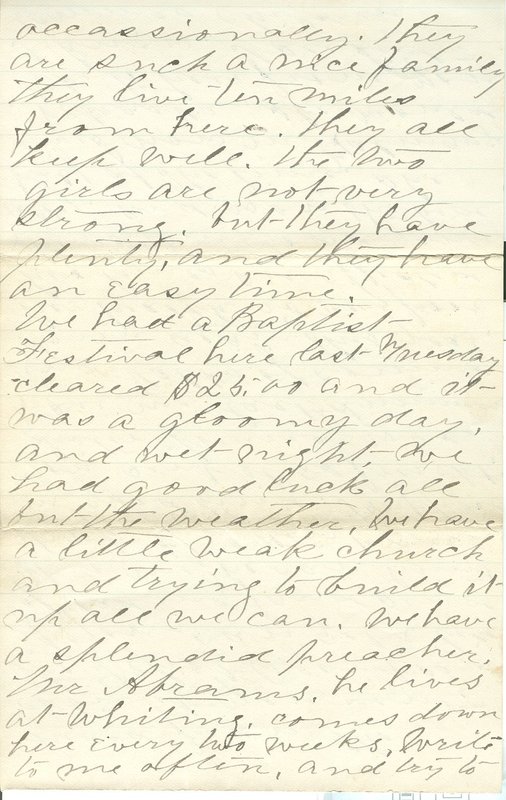 occassionally. They
are such a nice family
They live ten miles
from here. They all
keep well. the two
girls are not very
strong. but they have
plenty, and they have
an easy time.
We had a Baptist
Festival here last Tuesday
cleared $25.00 and it
was a gloomy day,
and wet night, we
had good luck all
but the weather. We have
a little weak church
and trying to build it
up all we can. We have
a splendid preacher,
Mr Abrams. he lives
at Whiting. comes down
here every two weeks. Write
to me often, and try to